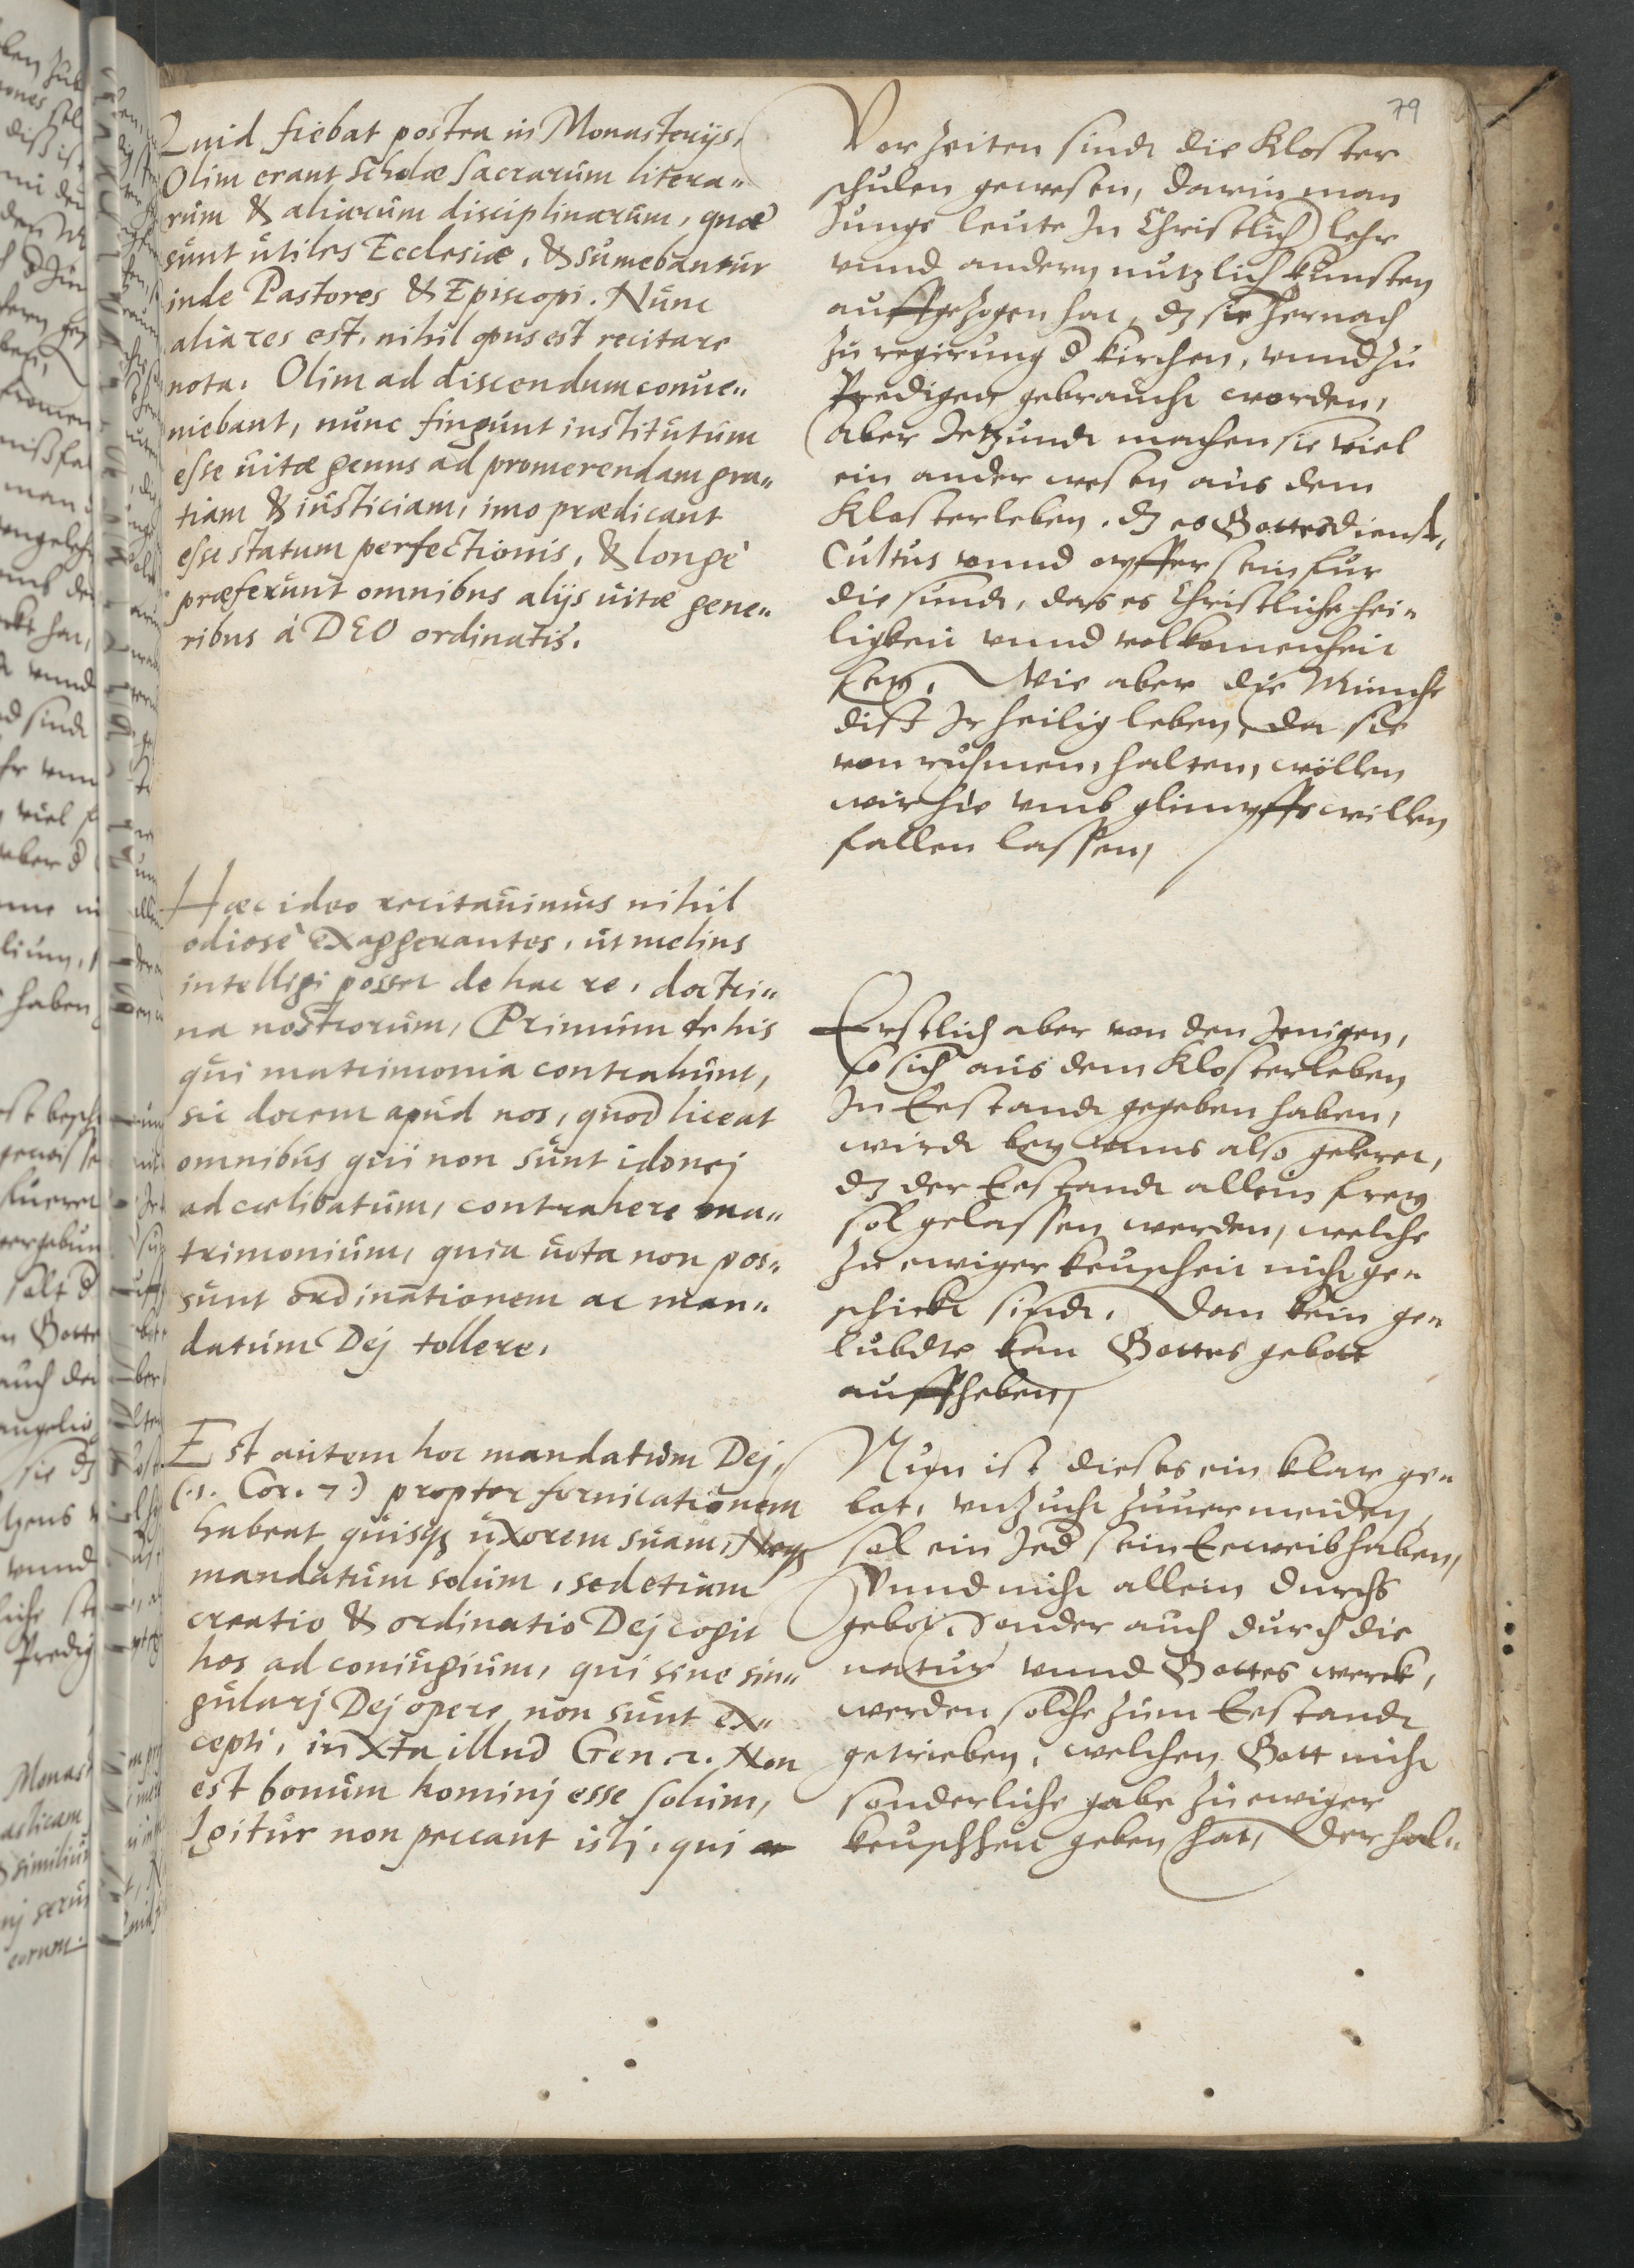 79
Quid fiebat postea in Monasterijs,
Olim erant scholæ sacrarum litera„
rum & aliarum disciplinarum, quæ
sunt utiles Ecclesiæ, & sumebantur
inde Pastores & Episcopi. Nunc
alia res est, nihil opus est recitare
nota. Olim ad discendum conue„
niebant, nunc fingunt institutum
esse uitæ genus ad promerendam gra„
tiam & iusticiam, imo prædicant
esse statum perfectionis, & longè
præferunt omnibus alijs uitæ gene„
ribus á DEO ordinatis.
Hæc ideo recitauimus nihil
odiosè exaggerantes, ut melius
intelligi posset de hac re, doctri„
na nostrorum, Primum de his
qui matrimonia contrahunt,
sic docent apud nos, quod liceat
omnibus qui non sunt idonej
ad cœlibatum, contrahere ma„
trimonium, quia uota non pos„
sunt ordinationem ac man„
datum Dej tollere.
Est autem hoc mandatum Dej,
(.1. Cor. 7.) propter fornicationem
habeat quisq uxorem suam, Neq
mandatum solum, sed etiam
creatio & ordinatio Dej cogit
hos ad coniugium, qui sine sin„
gularj Dej opere non sunt ex„
cepti, iuxta illud Gen. 2. Non
est bonum hominj esse solum,
Igitur non peccant istj, qui
Vor Zeiten sindt die Kloster
schulen gewesen, darin man
Junge leute In Christlich lehr
vnnd andern nutzlich kunsten
auffgezogen hat, dz sie hernach
zu regirung d kirchen, vnnd zu
Predigen gebraucht worden,
Aber Jetzundt machen sie viel
ein ander wesen aus dem
Klosterleben. dz es Gottesdienst,
Cultus vnnd opffer sein fur
die sundt, das es Christliche hei„
ligkeit vnnd volkomenheit
sey, Wie aber die Munche
disß Ir heilig leben, da sie
von ruhmen, halten, wöllen
wir hie vmb glimpffs willen
fallen lassen,
Erstlich aber von den Jenigen,
so sich aus dem Klosterleben
In Eestandt gegeben haben,
wirdt bey vnns also geleret,
dz der Eestandt allein frey
sol gelassen werden, welche
zu ewiger keuscheit nicht ge„
schickt sindt. Dan kein ge„
lubdte kan Gottes gebott
auffheben,
Nun ist dieses ein klar ge„
bot, vnzucht zuuermeiden,
sol ein Jed sein Eeweib haben,
Vnnd nicht allein durchs
gebot, Sonder auch durch die
natur vnnd Gottes werck,
werden solche zum Eestandt
getrieben, welchen Gott nicht
sonderliche gabe zu ewiger
keuschheit geben hat, Derhal„